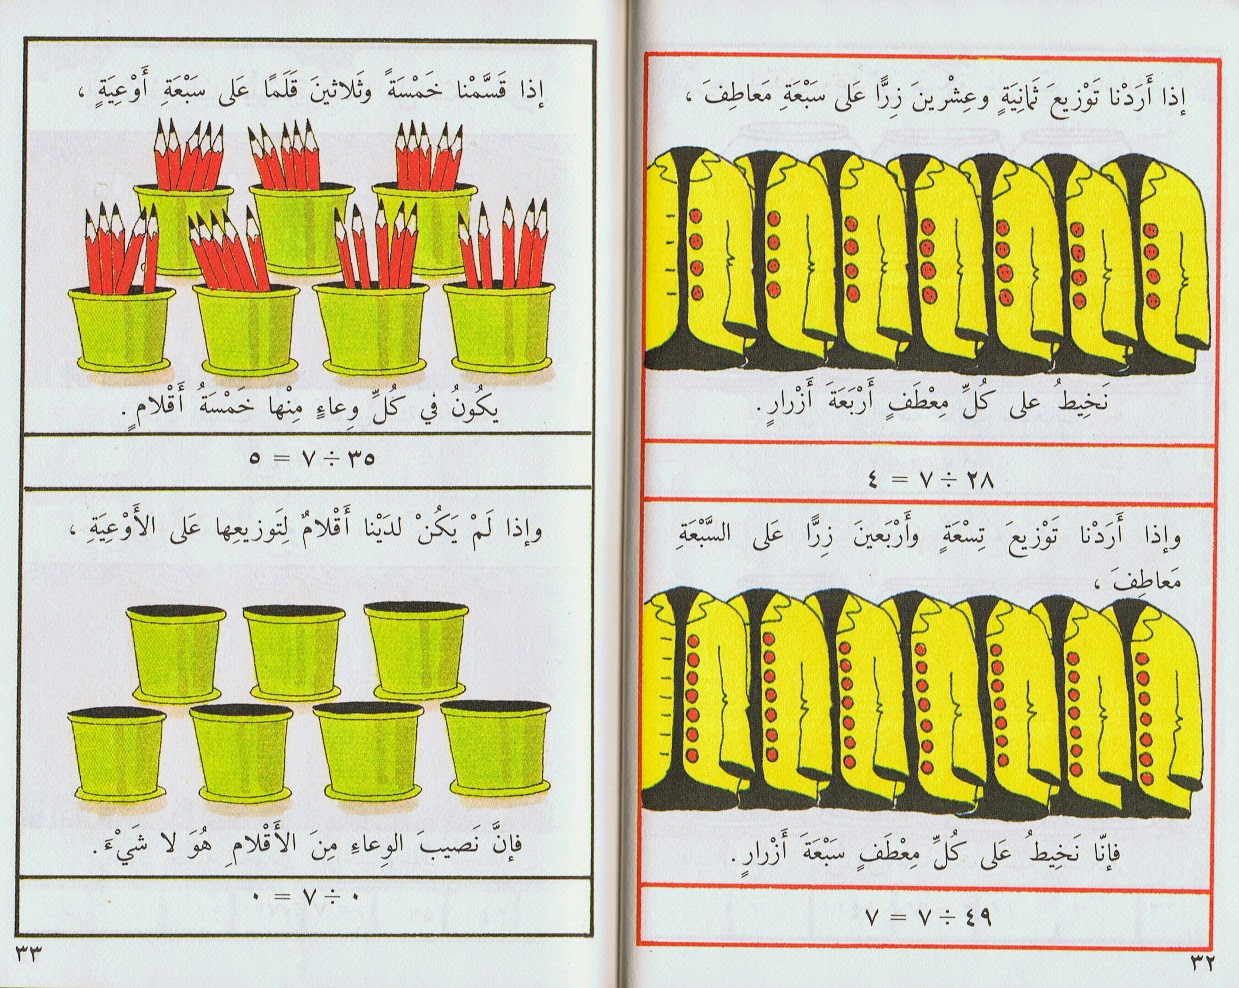 إذا أَرَدْنا تَوْزيعَ ثَمانِيَةٍ وعِشْرينَ زِرًّا عَلى سَبْعَةِ مَعاطِفَ ،
نَخِيطُ على كُلِّ مِعْطَفٍ أَرْبَعَةَ أَزْرارٍ.
٢٨ ÷ ٧ = ٤
وإذا أَرَدْنا تَوْزيعَ تِسْعَةٍ وأَرْبَعينَ زِرًّا عَلى السَّبْعَةِ
مَعاطِفَ ،
فإنّا نَخِيطُ عَلى كُلِّ مِعْطَفٍ سَبْعَةَ أَزْرارٍ.
٤٩ ÷ ٧ = ٧
٣٢
إذا قَسَّمْنا خَمْسَةً وثَلاثينَ قَلَمًا عَلى سَبْعَةِ أَوْعِيَةٍ ،
يكُونُ في كُلِّ وِعاءٍ مِنْها خَمْسَةُ أَقْلامٍ.
٣٥ ÷ ٧ = ٥
وإذا لَمْ يَكُنْ لدَيْنا أَقْلامٌ لِتَوزيعِها عَلى الأَوْعِيَةِ ،
فإنَّ نَصيبَ الوِعاءِ مِنَ الأَقْلامِ هُوَ لا شَيْءَ.
٠ ÷ ٧ = ٠
٣٣